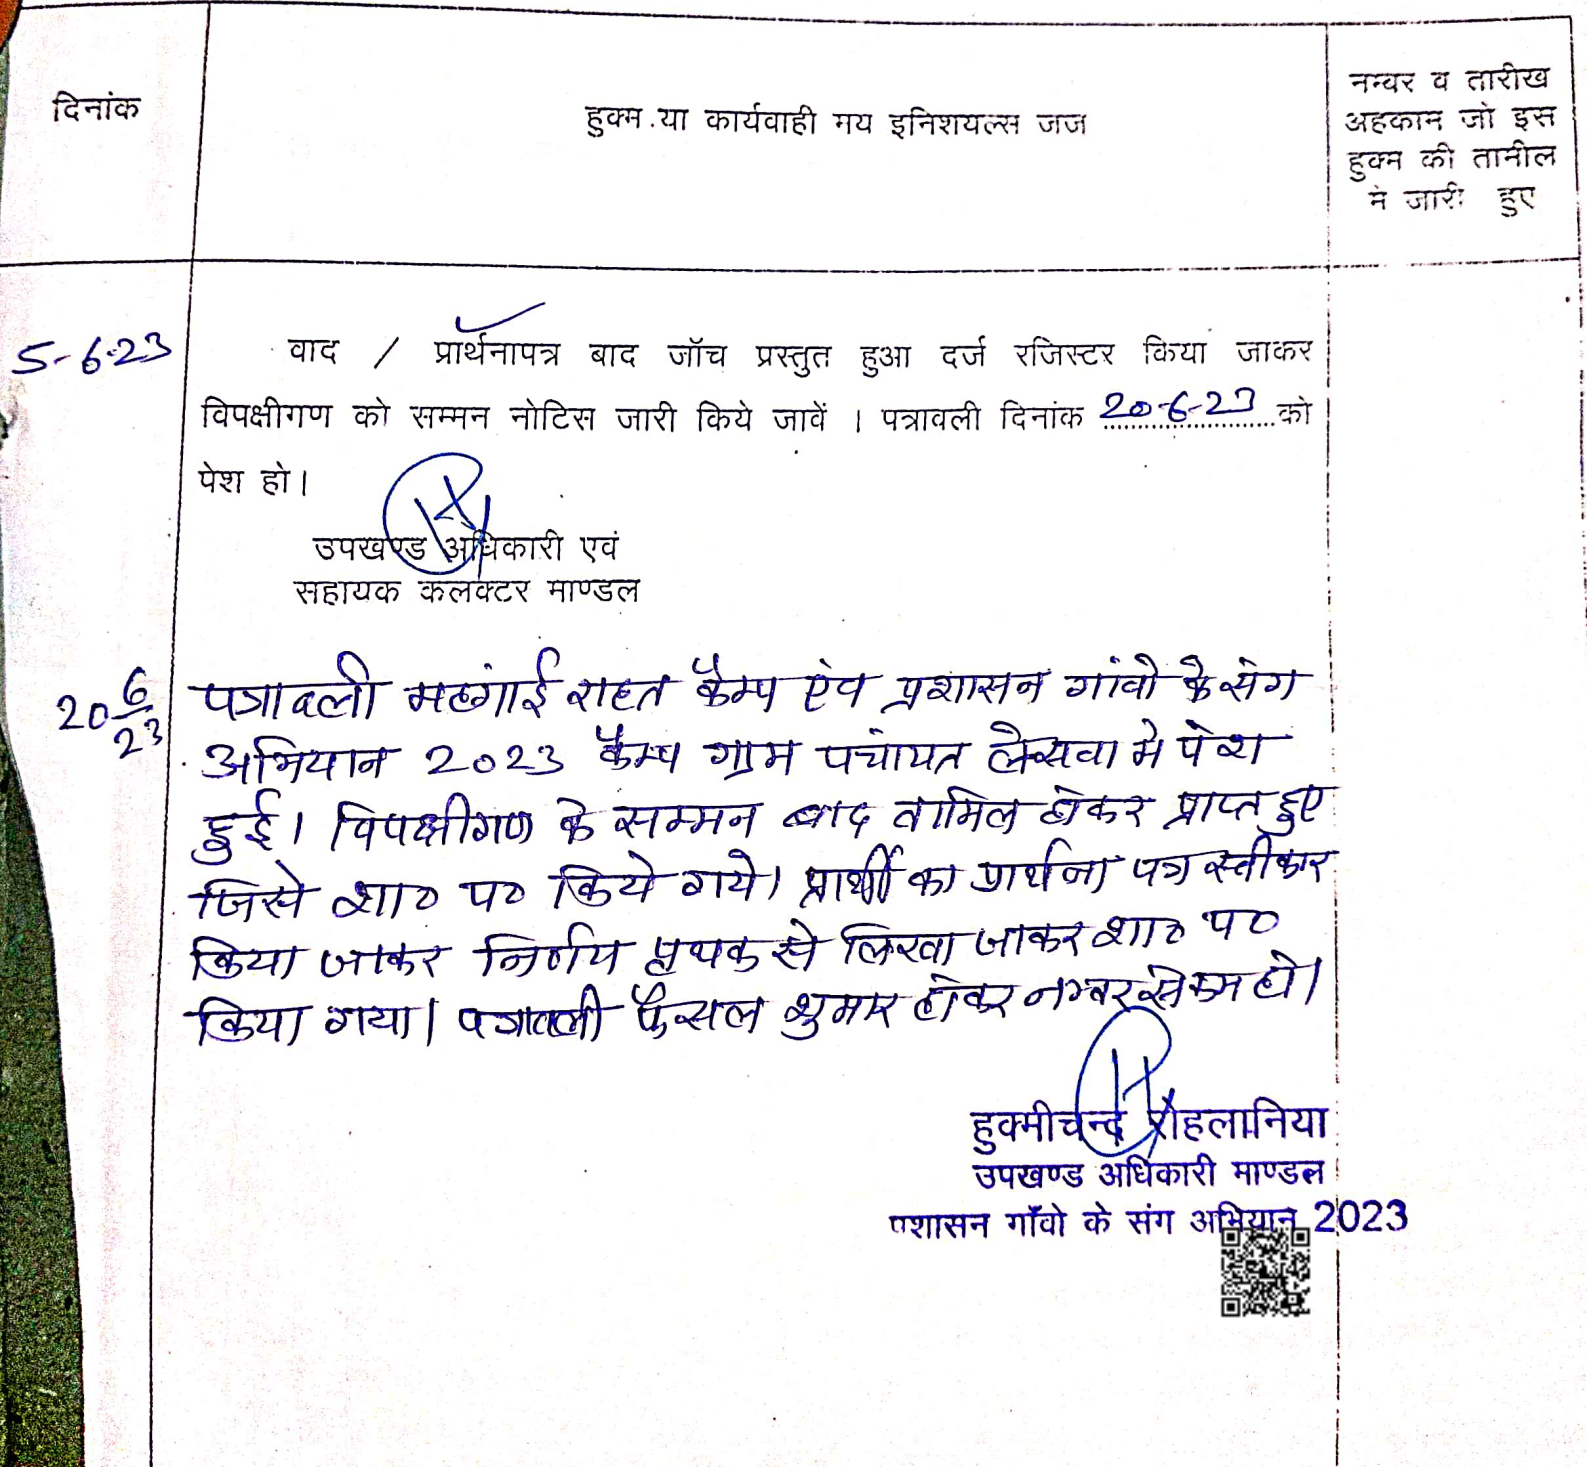 दिनांक
हुक्म या कार्यवाही मय इनिशयल्स जज
नम्बर व तारीख
अहकाम जो इस
हुक्म की तामील
में जारी हुए
5-6-23
वाद / प्रार्थनापत्र बाद जॉच प्रस्तुत हुआ दर्ज रजिस्टर किया जाकर
विपक्षीगण को सम्मन नोटिस जारी किये जावें । पत्रावली दिनांक 20-6-23 को
पेश हो।
उपखण्ड अधिकारी एवं
सहायक कलक्टर माण्डल
20 6/23
पत्रावली महंगाई राहत कैम्प एंव प्रशासन गांवो के संग
अभियान 2023 कैम्प ग्राम पचांयत लेसवा मे पेश
हुई। विपक्षीगण के सम्मन बाद तामिल होकर प्राप्त हुए
जिसे शा० प० किये गये। प्रार्थी का प्रार्थना पत्र स्वीकार
किया जाकर निर्णय पृथक से लिखा जाकर शा० प०
किया गया। पत्रावली फैसल शुमार होकर नम्बर से कम हो।
हुक्मीचन्द रोहलानिया
उपखण्ड अधिकारी माण्डल
प्रशासन गाँवो के संग अभियान 2023